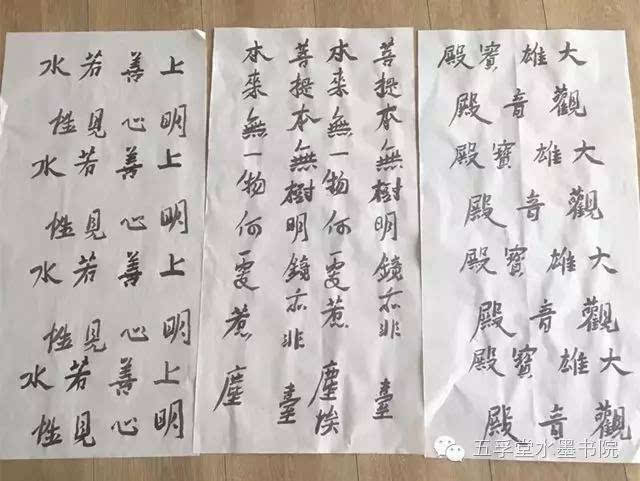 大雄寶殿
觀音殿
大雄寶殿
觀音殿
大雄寶殿
觀音殿
大雄寶殿
觀音殿
菩提本無樹明鏡亦非臺
本来無一物何處惹塵埃
菩提本無樹明鏡亦非臺
本来無一物何處惹塵
上善若水
明心見性
上善若水
明心見性
上善若水
明心見性
上善若水
明心見性
五孚堂水墨书院